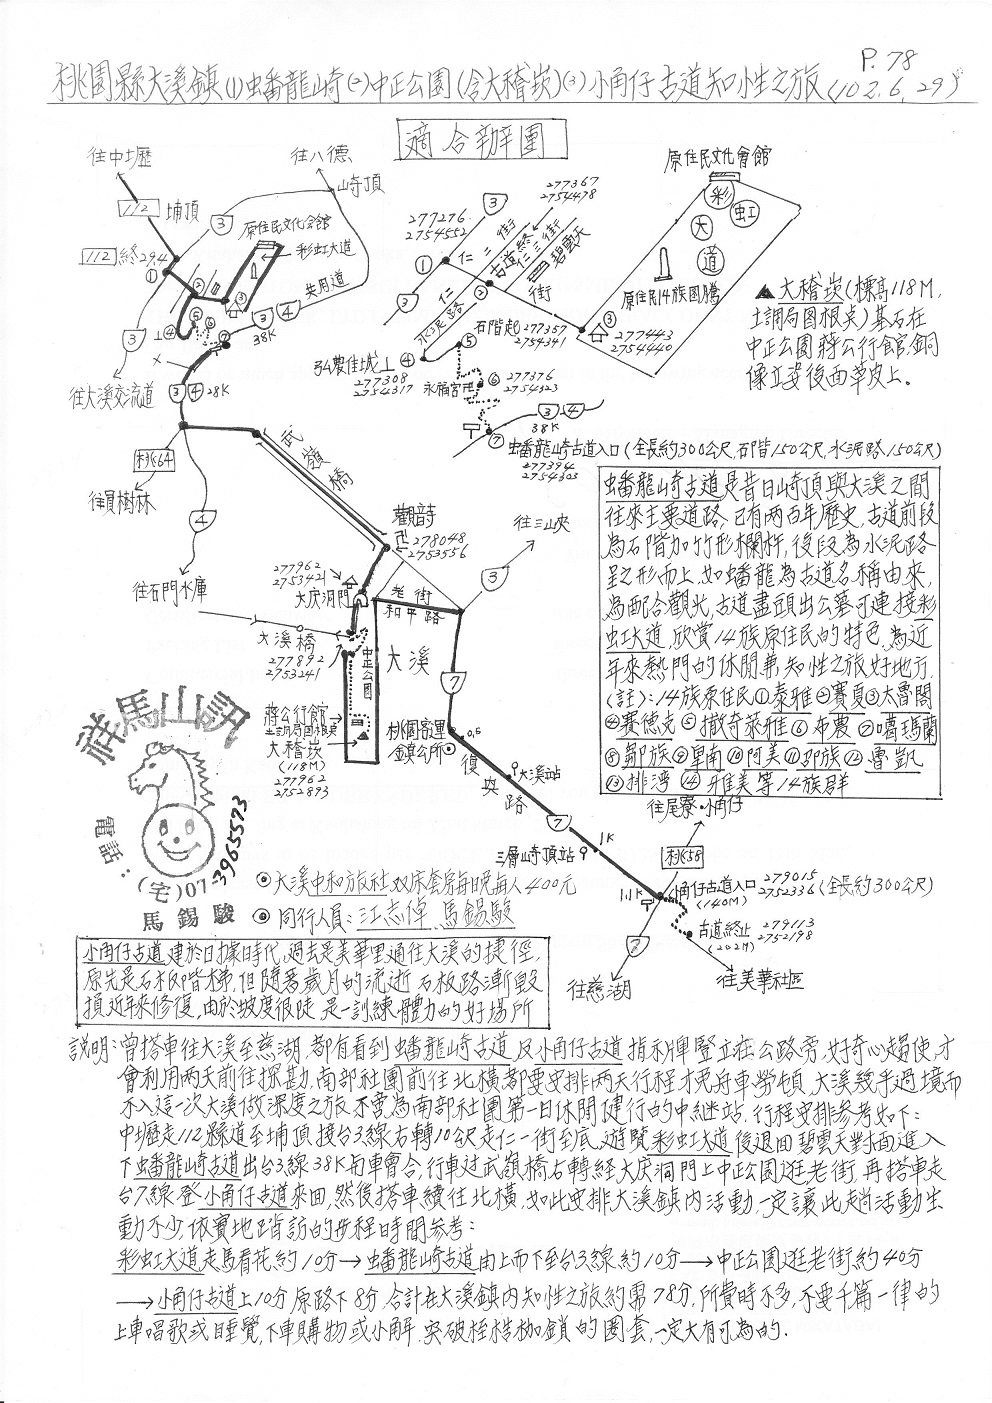 P.78
桃園縣大溪鎮(1)蟠龍崎(2)中正公園(含大嵙崁)(3)小角仔古道知性之旅(102.6.29)
適合辦團
往中壢
往八德
崎頂
112
埔頂
3
原住民文化會館
彩虹大道
112終29.4
共用道
3 4
38K
往大溪交流道
3 4 28K
桃64
往員樹林
4
往石門水庫
武嶺橋
觀音寺
278048
2753556
往三峽
3
277962
2753421
大慶洞門
老街
和平路
大溪橋
277892
2753241
中正公園
大溪
7
蔣公行館
土調局圖根點
大嵙崁
(118M)
277962
2752893
桃園客運
0.5
鎮公所
復興路
大溪站
7
三層崎頂站
1K
1.1K
往尾寮·小角仔
桃58
小角仔古道入口
(140M)
279015
2752336
(全長約300公尺)
古道終止
(202M)
279113
2752198
7
往慈湖
往美華社區
277276
2754552
3
仁二街
古道終
仁三街
277367
2754478
碧雲天
仁一街
水泥路
石階起
277357
2754341
弘農佳城
277308
2754317
永福宮
277376
2754323
38K
3 4
蟠龍崎古道入口(全長約300公尺,石階150公尺,水泥路150公尺)
277394
2754303
原住民文化會館
彩虹大道
原住民14族圖騰
277443
2754440
▲大嵙崁(標高118M,
土調局圖根點)基石在
中正公園蔣公行館.銅
像立姿後面草皮上。
蟠龍崎古道是昔日崎頂與大溪之間
往來主要道路,已有兩百年歷史,古道前段
為石階加竹形欄杆,後段為水泥路
呈之形而上,如蟠龍為古道名稱由來,
為配合觀光,古道盡頭出公墓可連接彩
虹大道,欣賞14族原住民的特色,為近
年來熱門的休閒兼知性之旅好地方.
(註):14族原住民①泰雅②賽夏③太魯閣
④賽德克⑤撒奇萊雅⑥布農⑦噶瑪蘭
⑧鄒族⑨卑南⑩阿美⑪邵族⑫魯凱
⑬排灣⑭雅美等14族群
祥馬山訊
電話:(宅)07-3965573
馬錫駿
⊙大溪中和旅社双床套房每晚每人400元
⊙同行人員:江志偉.馬錫駿
小角仔古道建於日據時代,過去是美華里通往大溪的捷徑,
原先是石板階梯,但隨著歲月的流逝石板路漸毀
損近年來修復,由於坡度很陡是一訓練體力的好場所
說明:曾搭車往大溪至慈湖,都有看到蟠龍崎古道及小角仔古道指示牌豎立在公路旁,好奇心趨使,才
會利用兩天前往探勘,南部社團前往北橫都要安排兩天行程才免舟車勞頓,大溪幾乎過境而
不入這一次大溪做深度之旅不啻為南部社團第一日休閒健行的中繼站.行程安排參考如下:
中壢走112縣道至埔頂接台3線右轉10公尺走仁一街至底,遊覽彩虹大道後退回碧雲天對面進入
下蟠龍崎古道出台3線38K与車會合,行車过武嶺橋右轉經大慶洞門上中正公園逛老街,再搭車走
台7線登小角仔古道來回,然後搭車續往北橫,如此安排大溪鎮內活動,一定讓此趟活動生
動不少,依實地踏訪的步程時間參考:
彩虹大道走馬看花約10分→蟠龍崎古道由上而下至台3線約10分→中正公園逛老街約40分
→小角仔古道上10分原路下8分.合計在大溪鎮內知性之旅約需78分,所費時不多,不要千篇一律的
上車唱歌或睡覺,下車購物或小解,突破桎梏枷鎖的圈套,一定大有可為的.